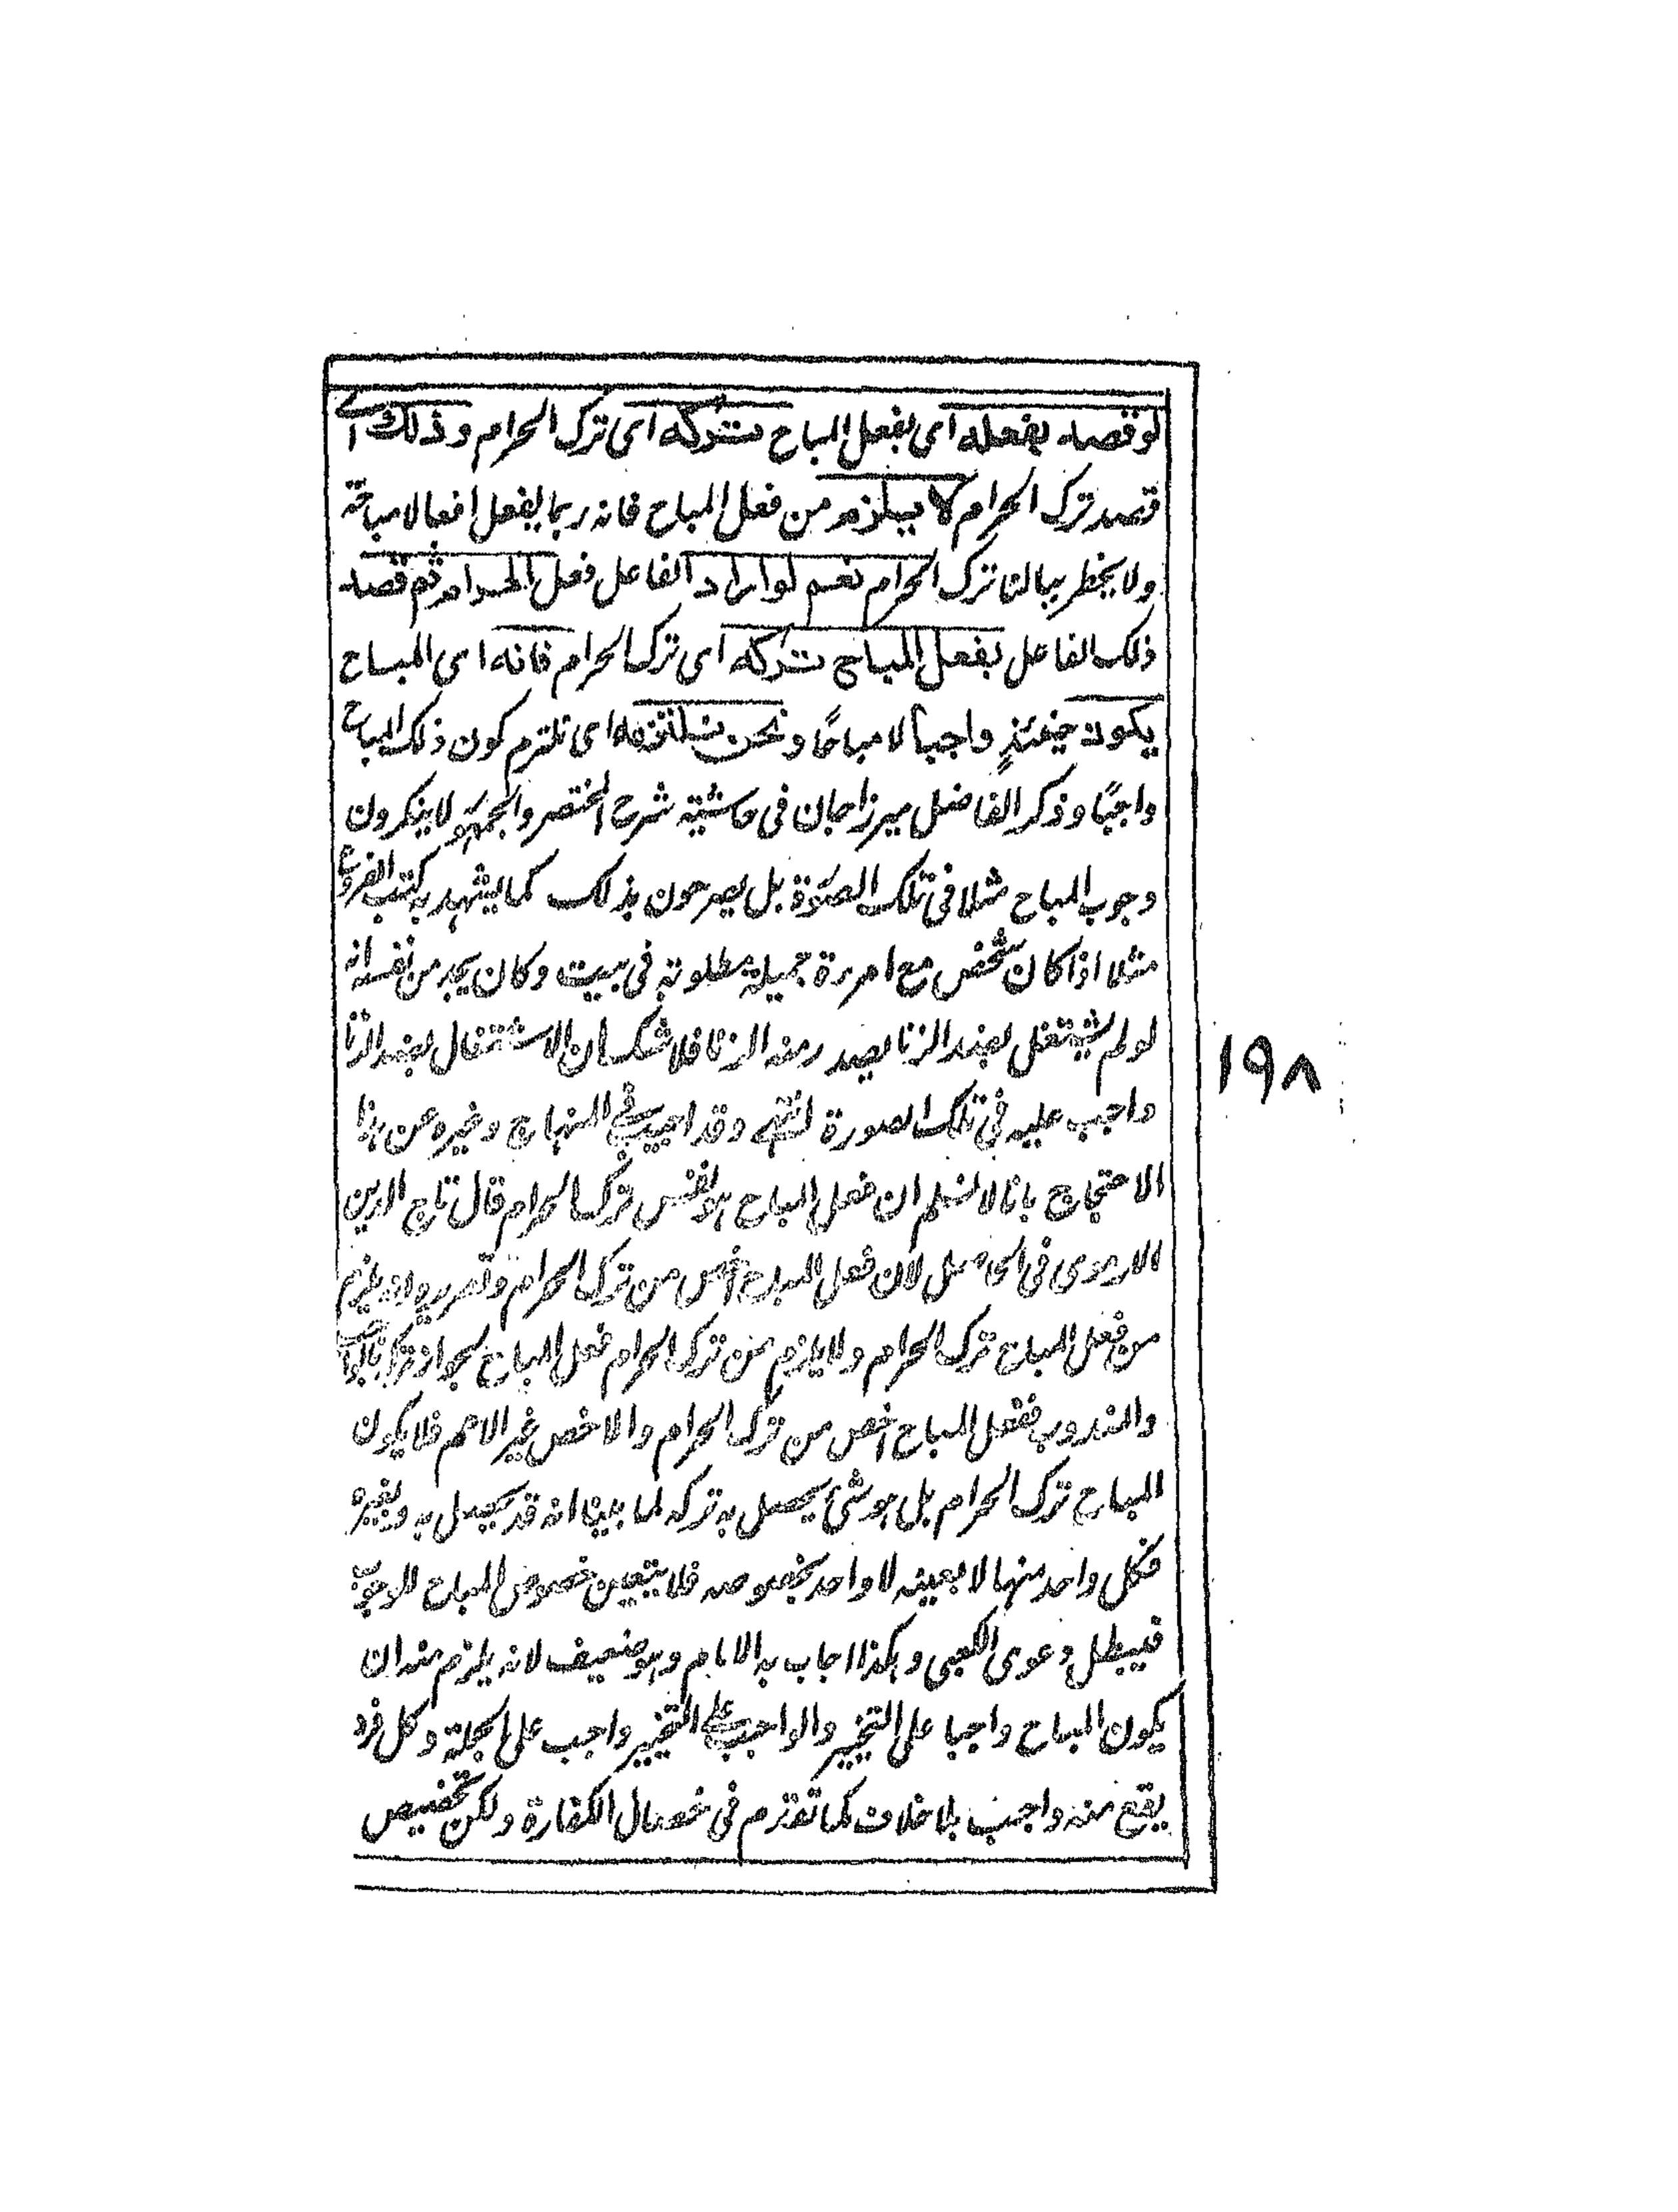 لو قصد بفعله اى بفعل المباح تركه اى ترك الحرام وذلك اے
قصد ترك الحرام لا يلزم من فعل المباح فانه ربما يفعل افعالا مباحة
ولا يخطر ببالنا ترك الحرام نعم لو اراد الفاعل فعل الحرام ثم قصد
ذلك الفاعل بفعل المباح تركه اى ترك الحرام فانه اى المباح
يكون حينئذٍ واجبا لا مباحًا ونحن نلتزمه اى نلتزم كون ذلك المباح
واجبًا وذكر الفاضل ميرزاجان فى حاشيته شرح المختصر والجمهور لا ينكرون
وجوب المباح مثلا فى تلك الصورة بل يصرحون بذلك كما يشهد به كتب الفروع
مثلا اذا كان شخص مع امردة جميلة مطلوبة فى بيت وكان يجد من نفسه انه
لو لم يشتغل بضد الزنا يصدر منه الزنا فلا شك ان الاشتغال بضد الزنا
واجب عليه فى تلك الصورة انتهى وقد اجيب فى المنهاج وغيره عن هذا
الاحتجاج بانا لا نسلم ان فعل المباح هو نفس ترك الحرام قال تاج الدين
الارموى فى الحاصل لان فعل المباح اخص من ترك الحرام وتقريره انه يلزم
من فعل المباح ترك الحرام ولا يلزم من ترك الحرام فعل المباح لجواز تركه بالواجب
والمندوب ففعل المباح اخص من ترك الحرام والاخص غير الاعم فلا يكون
المباح ترك الحرام بل هو شئ يحصل به تركه لما بينا انه قد يحصل به وبغيره
فكل واحد منها لا بعينه لا واحد بخصوصه فلا يتعين خصوص المباح للوجوب
فيبطل دعوى الكعبى وهكذا اجاب به الامام وهو ضعيف لانه يلزم منه ان
يكون المباح واجبا على التخيير والواجب على التخيير واجب على الجملة وكل فرد
يقع منه واجب بلا خلاف كما تقدم فى خصال الكفارة ولكن تخصيص
١٩٨